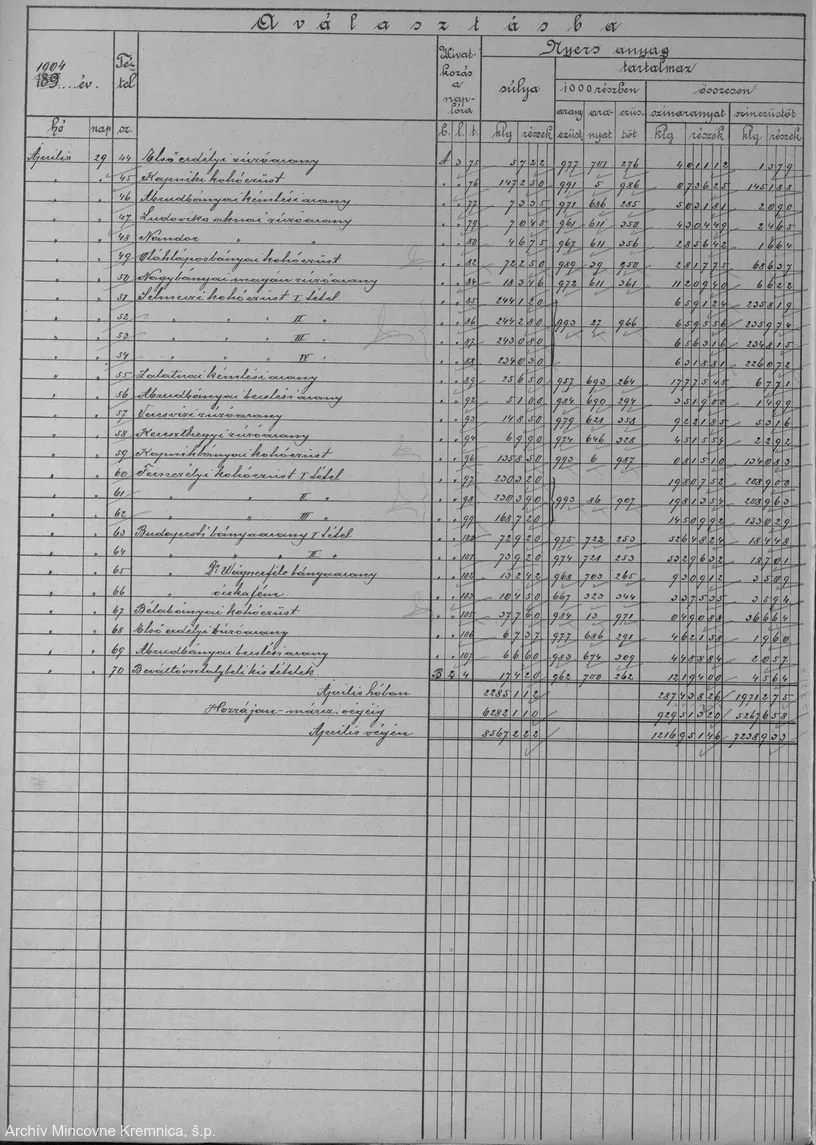 A választásba
Nyers anyag
1904 189 év.
Tétel
Hivatkozás a naplóra
súlya
tartalmaz
1000 részben
összesen
arany ezüst
aranyat
ezüstöt
színaranyat
színezüstöt
hó nap sz. C. l. t. klg részek klg részek klg részek
Április 29 44 Első erdélyi zúzóarany A 3 75 5722 977 701 276 401112 1579
" " 45 Kapniki kohóezüst " " 76 147250 991 5 986 073625 145188
" " 46 Abrudbányai kémlési arany " " 77 7335 971 686 285 503181 2090
" " 47 Ludovika aknai zúzóarany " " 79 7045 961 611 350 430449 2465
" " 48 Nándor " " " " 80 4675 967 611 356 285642 1664
" " 49 Oláhláposbányai kohóezüst " " 82 72250 989 39 950 281775 68637
" " 50 Nagybányai magán zúzóarany " " 84 18346 972 611 361 1120940 6622
" " 51 Selmeczi kohóezüst I tétel " " 85 244120 659124 235819
" " 52 " " II " " " 86 244280 993 27 966 659556 235974
" " 53 " " III " " " 87 243080 656316 234815
" " 54 " " IV " " " 88 234030 631881 226072
" " 55 Zalatnai kémlési arany " " 89 25650 957 693 264 1777545 6771
" " 56 Abrudbányai beváltási arany " " 92 5100 984 690 294 351900 1499
" " 57 Veresvizi zúzóarany " " 93 14850 979 621 358 922185 5316
" " 58 Kereszthegyi zúzóarany " " 94 6990 974 646 328 451554 2292
" " 59 Kapnikbányai kohóezüst " " 96 135850 993 6 987 081510 134083
" " 60 Fernezélyi kohóezüst I tétel " " 97 230320 1980752 208900
" " 61 " " II " " " 98 230390 993 86 907 1981354 208963
" " 62 " " III " " " 99 168720 1450992 153029
" " 63 Budapesti bányaarany I tétel " " 100 72920 975 722 253 5264824 18448
" " 64 " " II " " " 101 73920 974 721 253 5329632 18701
" " 65 " Dr Wágnerféle bányaarany " " 102 13242 968 703 265 930912 3509
" " 66 " ócskafém " " 103 10450 667 323 344 337535 3594
" " 67 Bélabányai kohóezüst " " 105 37760 984 13 971 049088 36664
" " 68 Első erdélyi zúzóarany " " 106 6737 977 686 291 462158 1960
" " 69 Abrudbányai beváltási arany " " 107 6660 983 674 309 448884 2057
" " 70 Beváltóosztálybeli kis tételek B 2 4 17420 962 700 262 1219400 4564
Április hóban 2285112 28743826 1971275
Hozzá jan–márcz. végéig 6282110 92951320 5267658
Április végén 8567222 121695146 7238933
Archív Mincovne Kremnica, š.p.